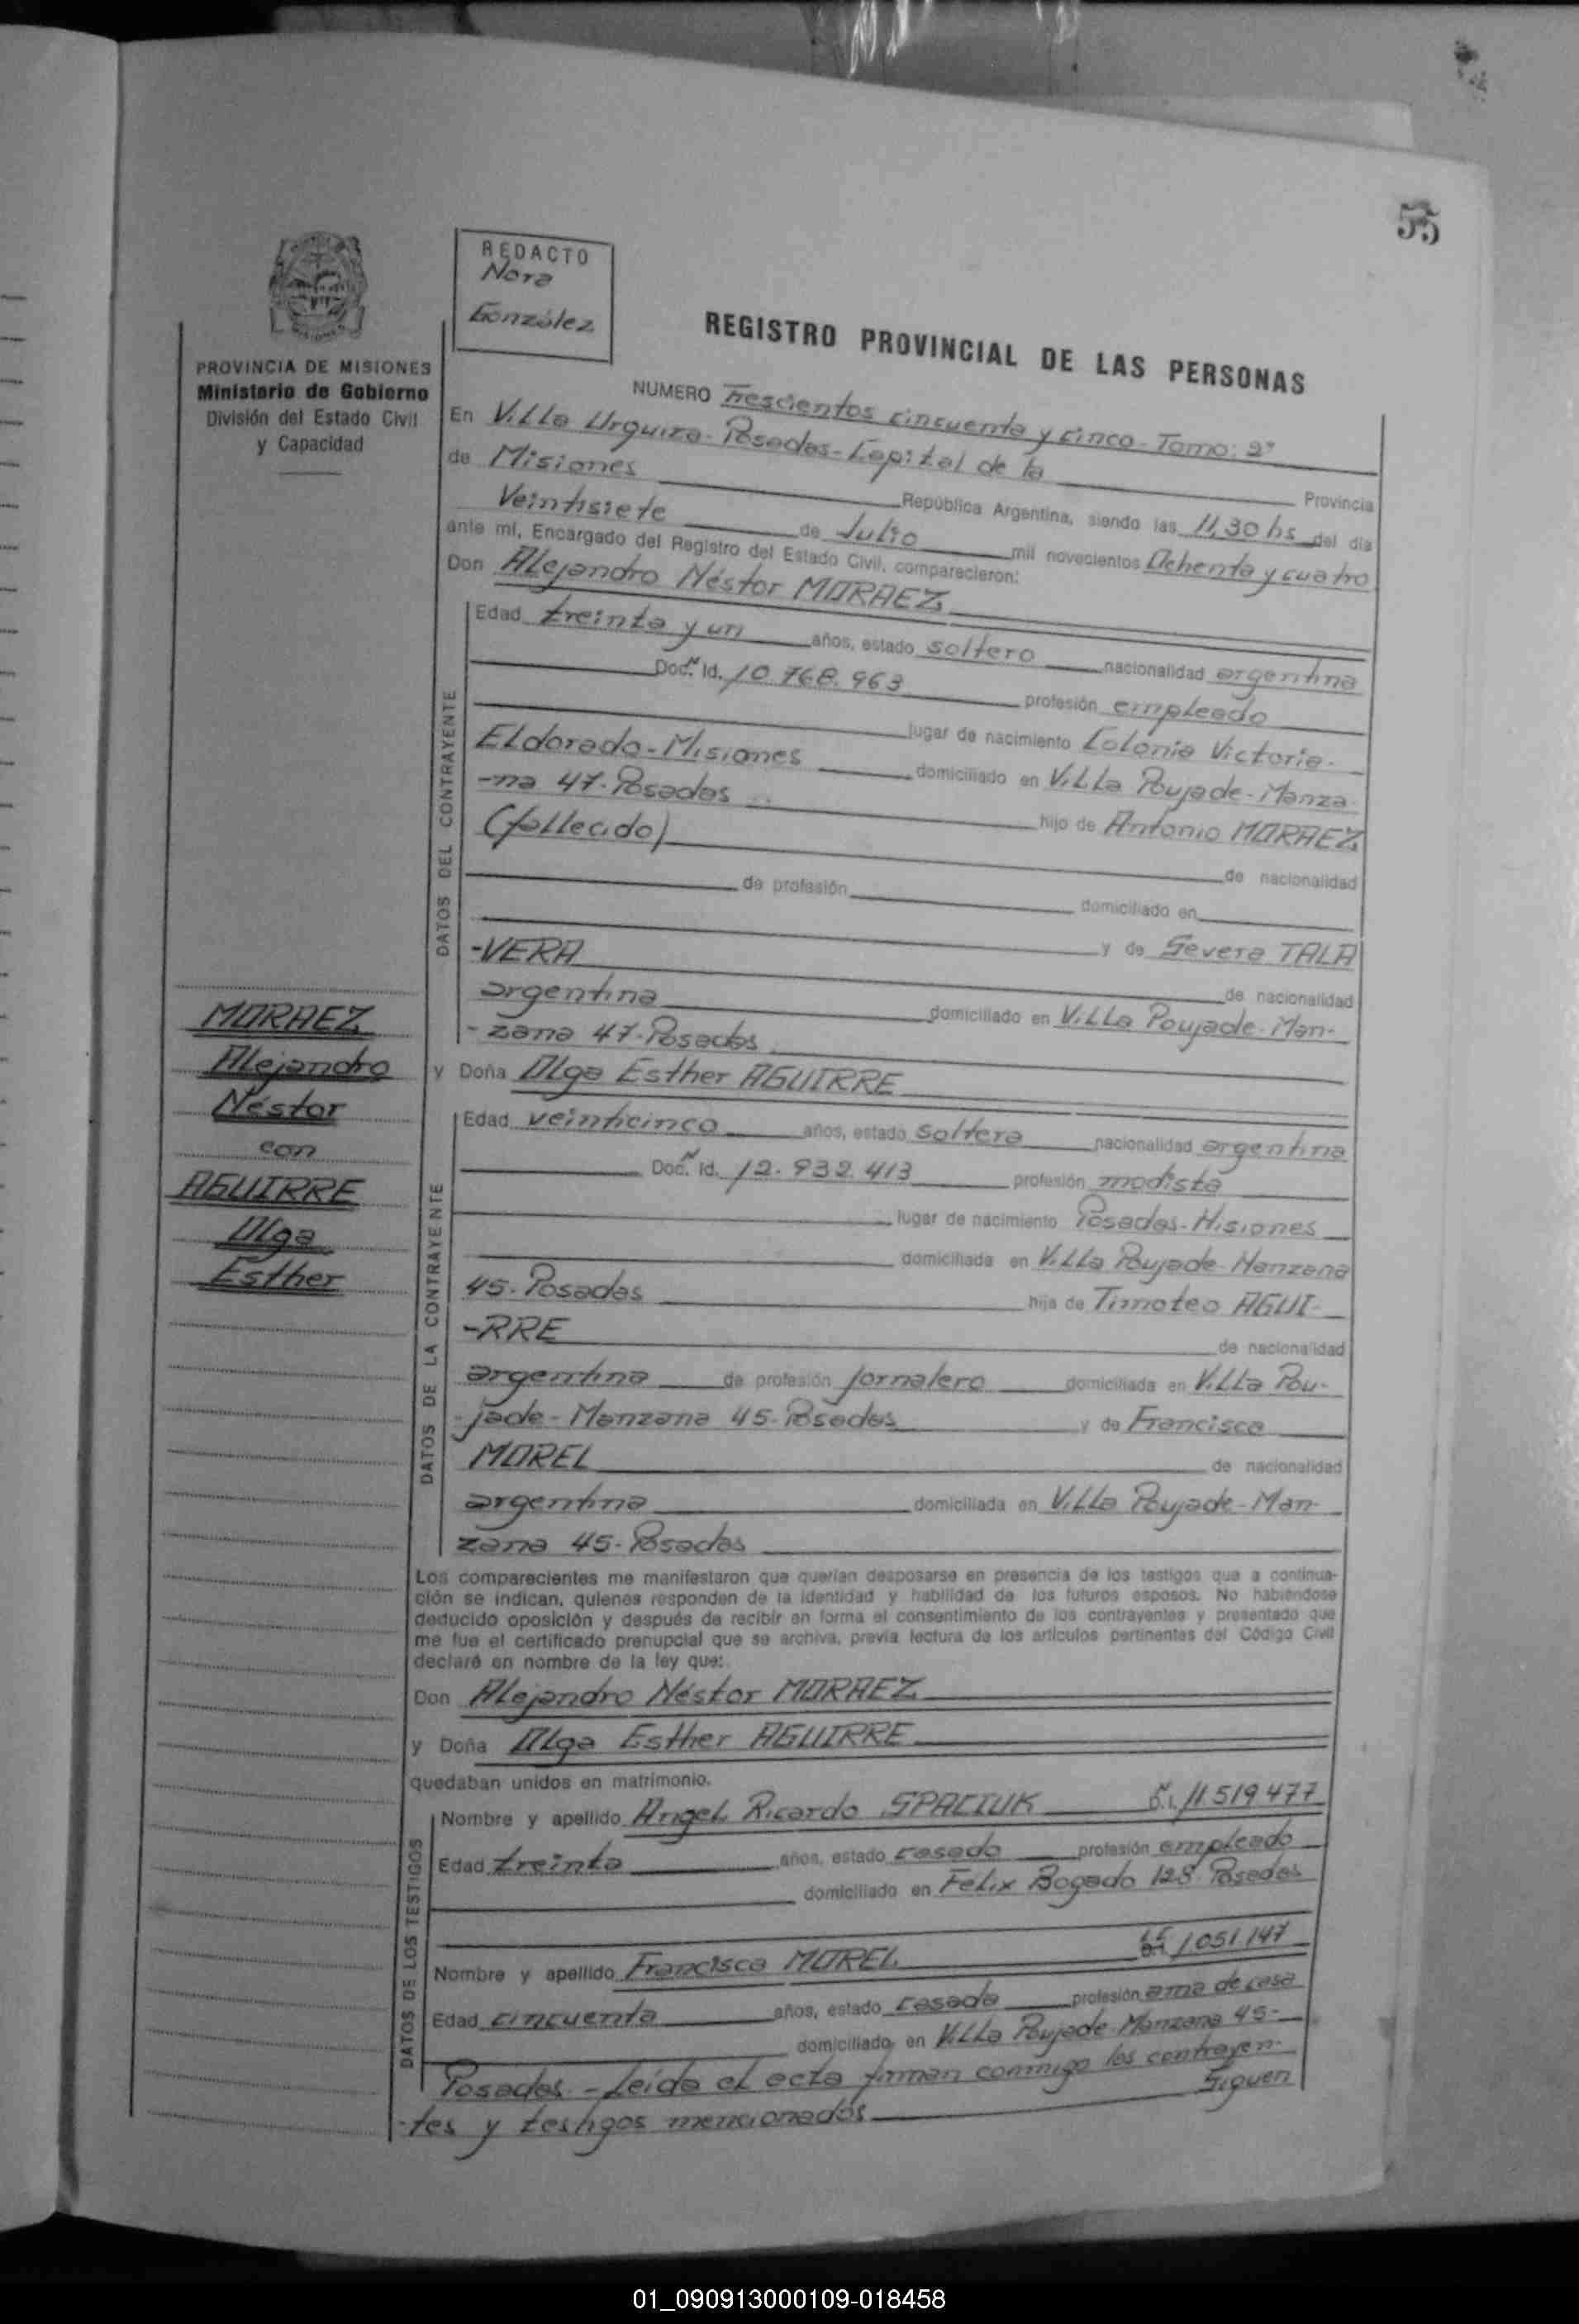 55
REDACTO
Nora
González
REGISTRO PROVINCIAL DE LAS PERSONAS
PROVINCIA DE MISIONES
Ministerio de Gobierno
División del Estado Civil
y Capacidad
NUMERO Trescientos cincuenta y cinco - Tomo: 2º
En Villa Urquiza - Posadas - Capital de la Provincia
de Misiones República Argentina, siendo las 11,30 hs del día
Veintisiete de Julio mil novecientos Ochenta y cuatro
ante mí, Encargado del Registro del Estado Civil, comparecieron:
Don Alejandro Néstor MORAEZ
DATOS DEL CONTRAYENTE
Edad treinta y un años, estado soltero nacionalidad argentina
Doc. N Id. 10.768.963 profesión empleado
lugar de nacimiento Colonia Victoria -
Eldorado - Misiones domiciliado en Villa Poujade - Manza
-na 47 - Posadas hijo de Antonio MORAEZ
(fallecido) de nacionalidad
de profesión domiciliado en
y de Severa TALA
-VERA de nacionalidad
argentina domiciliado en Villa Poujade - Man-
-zana 47 - Posadas
y Doña Olga Esther AGUIRRE
MORAEZ
Alejandro
Néstor
con
AGUIRRE
Olga
Esther
DATOS DE LA CONTRAYENTE
Edad veinticinco años, estado soltera nacionalidad argentina
Doc. N Id. 12.932.413 profesión modista
lugar de nacimiento Posadas - Misiones
domiciliada en Villa Poujade - Manzana
45 - Posadas hija de Timoteo AGUI-
-RRE de nacionalidad
argentina de profesión jornalero domiciliada en Villa Pou-
-jade - Manzana 45 - Posadas y de Francisca
MOREL de nacionalidad
argentina domiciliada en Villa Poujade - Man
zana 45 - Posadas
Los comparecientes me manifestaron que querían desposarse en presencia de los testigos que a continua-
ción se indican, quienes responden de la identidad y habilidad de los futuros esposos. No habiéndose
deducido oposición y después de recibir en forma el consentimiento de los contrayentes y presentado que
me fue el certificado prenupcial que se archiva, previa lectura de los artículos pertinentes del Código Civil
declaré en nombre de la ley que:
Don Alejandro Néstor MORAEZ
y Doña Olga Esther AGUIRRE
quedaban unidos en matrimonio.
DATOS DE LOS TESTIGOS
Nombre y apellido Angel Ricardo SPACIUK 11.519.477
Edad treinta años, estado casado profesión empleado
domiciliado en Félix Bogado 128 Posadas
Nombre y apellido Francisca MOREL 1.051.147
Edad cincuenta años, estado casada profesión ama de casa
domiciliado en Villa Poujade - Manzana 45 -
Posadas - Leída el acta firman conmigo los contrayen-
-tes y testigos mencionados Siguen
01_090913000109-018458